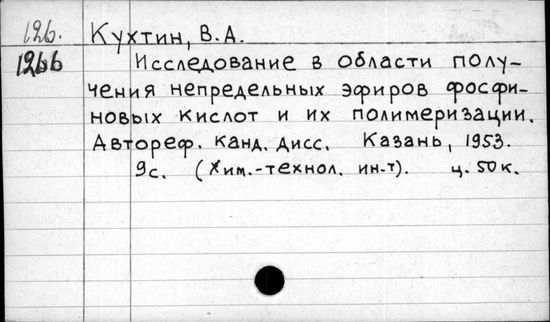 126. Кухтин, В.А.
1266 Исследование в области полу-
чения непредельных эфиров фосфи-
новых кислот и их полимеризации.
Автореф. канд. дисс. Казань, 1953.
9с. (Хим.-технол. ин-т). ц. 50к.